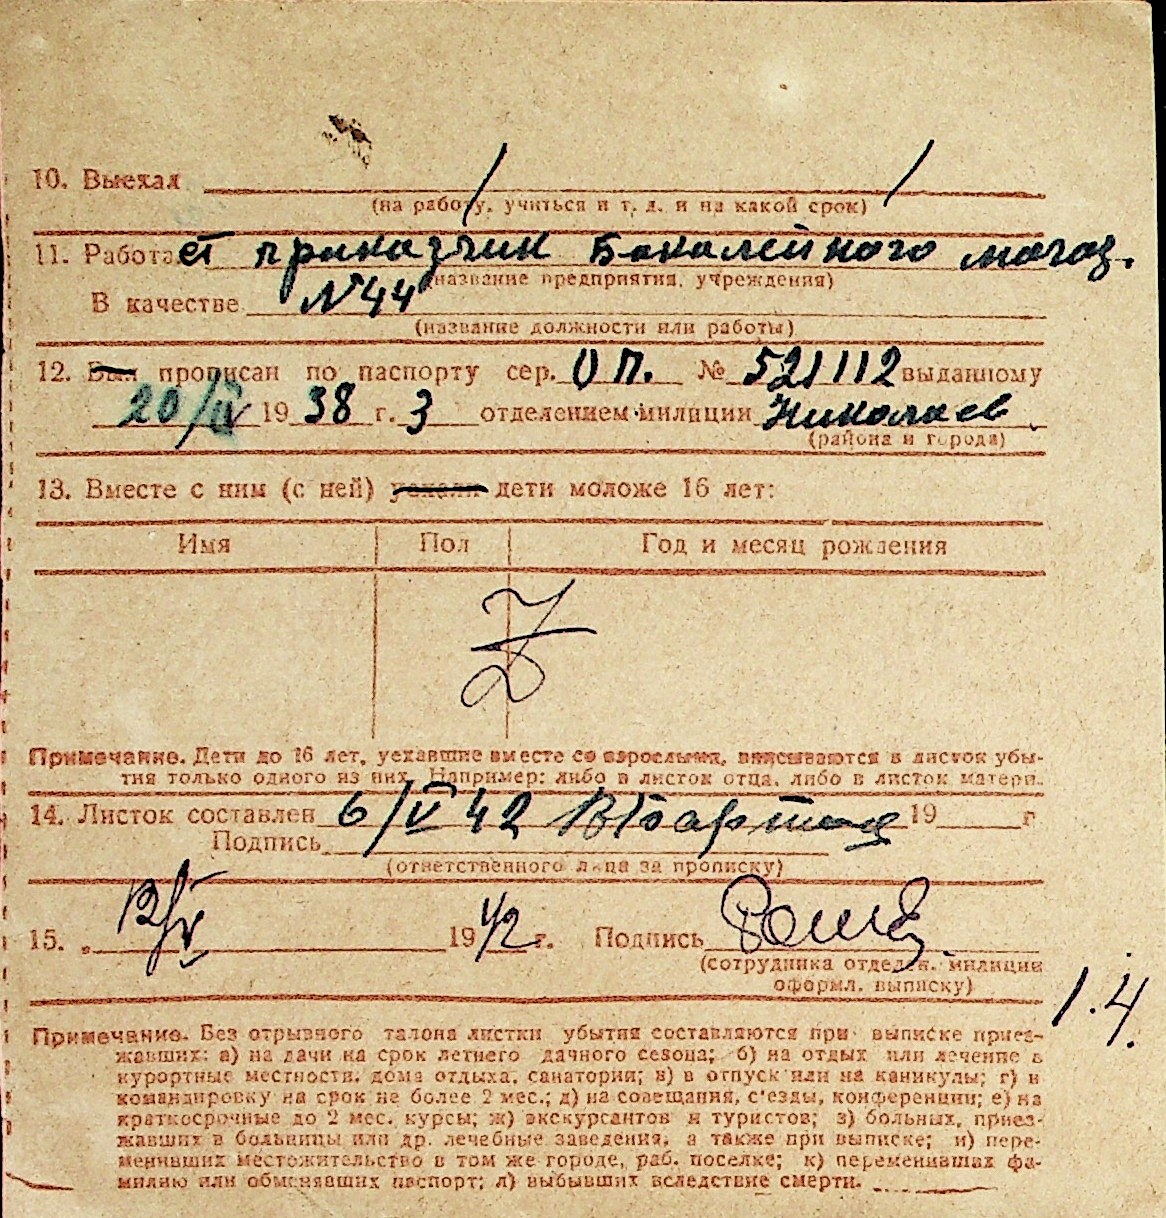 10. Выехал
(на работу, учиться и т. д. и на какой срок)
11. Работает приказчик Бакалейного магаз.
(название предприятия, учреждения)
В качестве N 44
(название должности или работы)
12. Был прописан по паспорту сер. ОП. № 521112 выданному
20/IV 1938 г. 3 отделением милиции Николаев
(района и города)
13. Вместе с ним (с ней) уехали дети моложе 16 лет:
Имя Пол Год и месяц рождения
Z
Примечание. Дети до 16 лет, уехавшие вместе со взрослыми, вписываются в листок убы-
тия только одного из них. Например: либо в листок отца, либо в листок матери.
14. Листок составлен 6/V 42 19 г
Подпись
(ответственного лица за прописку)
15. „ 12/V 1942 г. Подпись
(сотрудника отделен. милиции
оформл. выписку)
1.4.
Примечание. Без отрывного талона листки убытия составляются при выписке приез-
жавших: а) на дачи на срок летнего дачного сезона; б) на отдых или лечение в
курортные местности, дома отдыха, санатории; в) в отпуск или на каникулы; г) в
командировку на срок не более 2 мес.; д) на совещания, с'езды, конференции; е) на
краткосрочные до 2 мес. курсы; ж) экскурсантов и туристов; з) больных, приез-
жавших в больницы или др. лечебные заведения, а также при выписке; и) пере-
менивших местожительство в том же городе, раб. поселке; к) переменивших фа-
милию или обменявших паспорт; л) выбывших вследствие смерти.